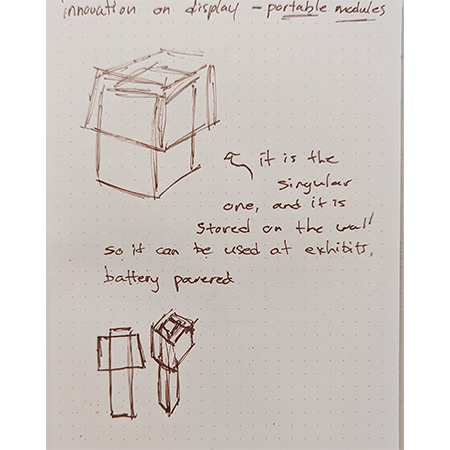 innovation on display - portable modules
it is the
singular
one, and it is
stored on the wall
so it can be used at exhibits,
battery powered